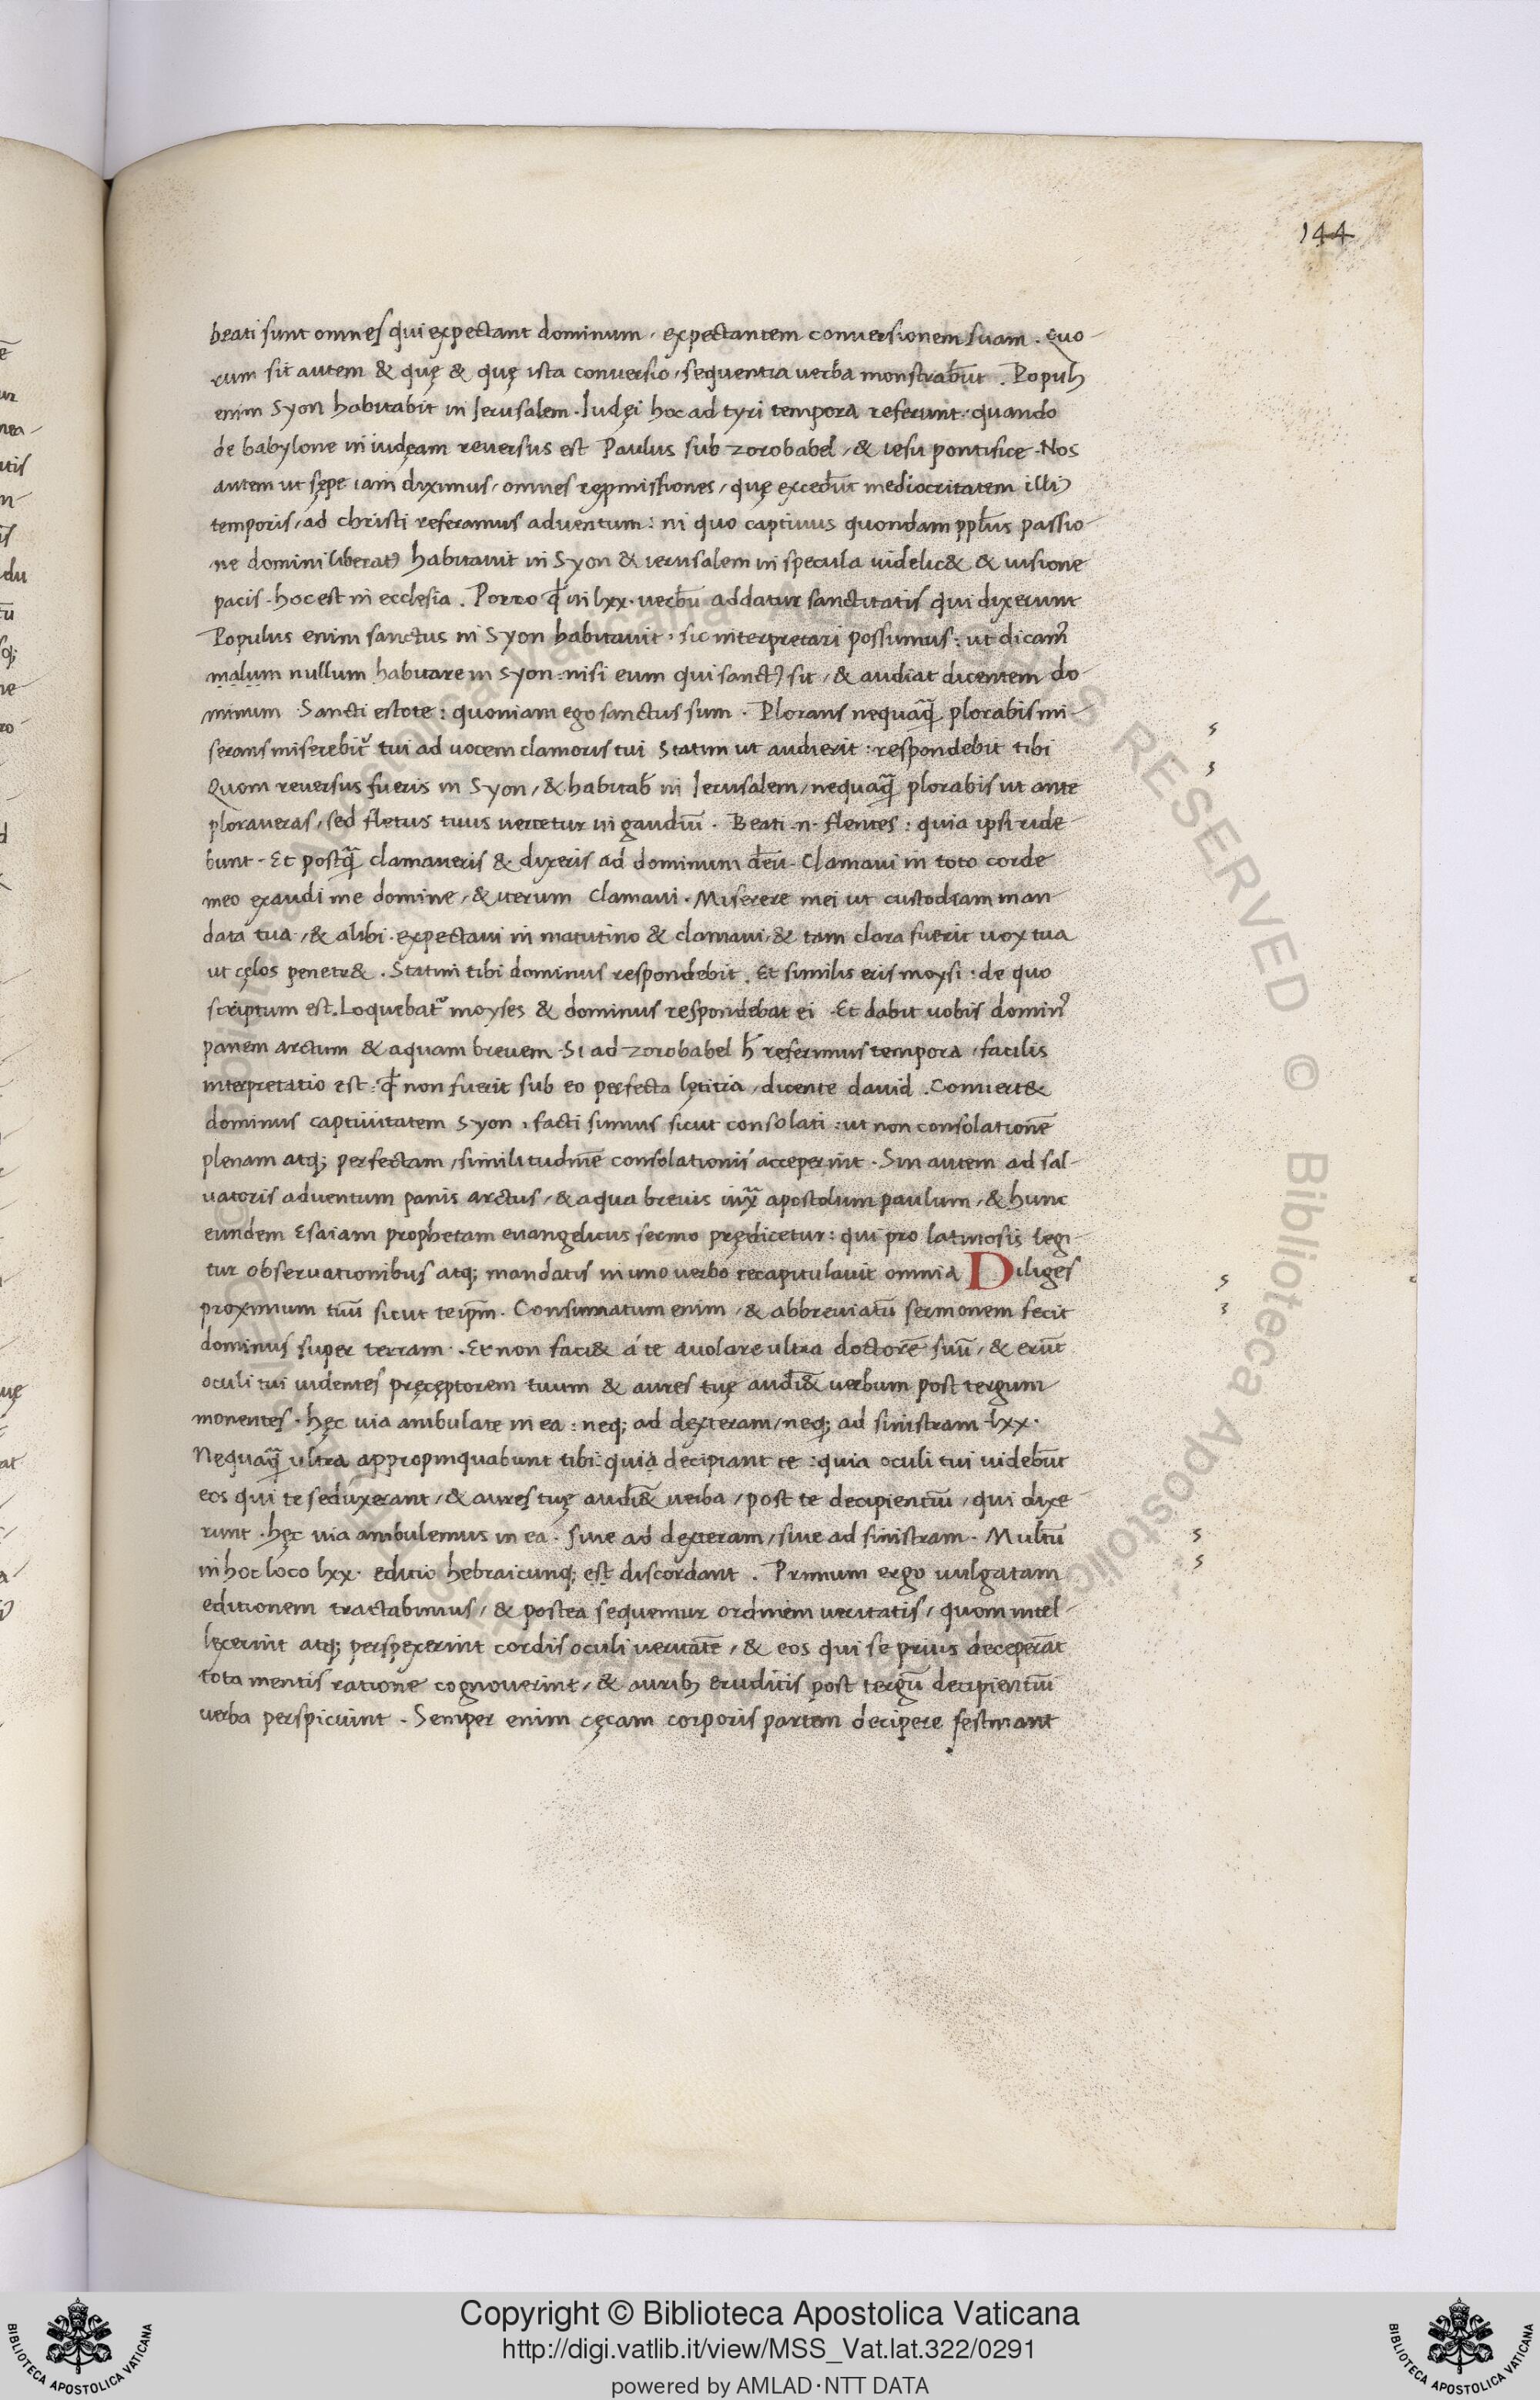 144
beati sunt omnes qui expectant dominum, expectantem conuersionem suam. quo-
rum sit autem & quę & quę ista conuersio, sequentia uerba monstrab̄ut. Populꝰ
enim Syon habitabit in Ierusalem. Iudęi hoc ad tyri tempora referunt: quando
de babylone in iudęam reuersus est Paulus sub zorobabel, & iesu pontifice. Nos
autem ut sępe iam diximus, omnes repmissiones, quę exced̄ut mediocritatem illiꝰ
temporis, ad christi referamus aduentum: in quo captiuus quondam ppl̄us passio-
ne domini liberatꝰ habitauit in Syon & ierusalem in specula uidelic& & uisione
pacis. hoc est in ecclesia. Porro qđ in lxx. uerbū addatur sanctitatis qui dixerunt
Populus enim sanctus in Syon habitauit, sic interpretari possumus: ut dicamꝰ
malum nullum habitare in Syon. nisi eum qui sanctꝰ sit, & audiat dicentem do-
minum Sancti estote: quoniam ego sanctus sum. Plorans nequaq̄ plorabis mi-
serans miserebit᷑ tui ad uocem clamoris tui Statim ut audierit: respondebit tibi
Quom reuersus fueris in Syon, & habitab̄ in Ierusalem, nequaq̄ plorabis ut ante
ploraueras, sed fletus tuus uertetur in gaudiū. Beati .n. flentes: quia ipsi ride-
bunt. Et postq̄ clamaueris & dixeris ad dominum dēu. Clamaui in toto corde
meo exaudi me domine, & iterum Clamaui. Miserere mei ut custodiam man-
data tua, & alibi. expectaui in matutino & clamaui, & tam clara fuerit uox tua
ut cęlos penetr&. Statim tibi dominus respondebit. Et similis eris moysi: de quo
scriptum est. Loquebat᷑ moyses & dominus respondebat ei. Et dabit uobis dominꝰ
panem arctum & aquam breuem. Si ad zorobabel h̄ referimus tempora, facilis
interpretatio est: qđ non fuerit sub eo perfecta lętitia, dicente dauid. Conuert&
dominus captiuitatem Syon, facti sumus sicut consolati: ut non consolationē
plenam atq; perfectam, similitudinē consolationis acceperint. Sin autem ad sal-
uatoris aduentum panis arctus, & aqua breuis iuxͣ apostolum paulum, & hunc
eundem Esaiam prophetam euangelicus sermo prędicetur: qui pro latinosis legi-
tur obseruationibus atq; mandatis in uno uerbo recapitulauit omnia Diliges
proximum tuū sicut teip̄m. Consumatum enim, & abbreuiatū sermonem fecit
dominus super terram. Et non faci& á te auolare ultra doctorē suū, & er̄ut
oculi tui uidentes pręceptorem tuum & aures tuę audi& uerbum post tergum
monentes. hęc uia ambulate in ea: neq; ad dexteram, neq; ad sinistram. lxx.
Nequaq̄ ultra appropinquabunt tibi: quia decipiant te: quia oculi tui uideb̄ut
eos qui te seduxerant, & aures tuę audi& uerba, post te decipientiū, qui dixe-
runt. hęc uia ambulemus in ea. siue ad dexteram, siue ad sinistram. Multū
in hoc loco lxx. editio hebraicunq; est discordant. Primum ergo uulgatam
editionem tractabimus, & postea sequemur ordinem ueritatis, quom intel-
lęxerint atq; perspexerint cordis oculi ueritatē, & eos qui se prius deceperāt
tota mentis ratione cognouerint, & auribꝫ eruditis post tergū decipientiū
uerba perspicuint. Semper enim cęcam corporis partem decipere festinant
Copyright © Biblioteca Apostolica Vaticana
http://digi.vatlib.it/view/MSS_Vat.lat.322/0291
powered by AMLAD·NTT DATA